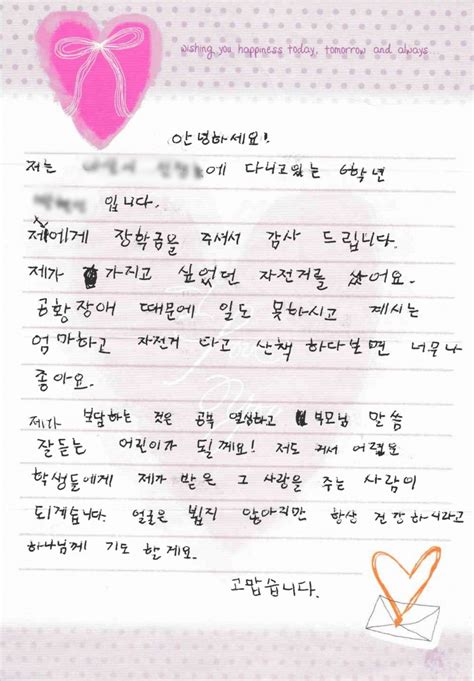 wishing you happiness today, tomorrow and always
안녕하세요!
저는 에 다니고있는 6학년
입니다.
저에게 장학금을 주셔서 감사 드립니다.
제가 가지고 싶었던 자전거를 샀어요.
공황장애 때문에 일도 못하시고 계시는
엄마하고 자전거 타고 산책 하다보면 너무나
좋아요.
제가 보답하는 것은 공부 열심하고 부모님 말씀
잘듣는 어린이가 될께요! 저도 커서 어렵운
학생들에게 제가 받은 그 사랑을 주는 사람이
되게습니다. 얼굴은 뵙지 않아지만 항상 건강하시라고
하나님께 기도 할게요.
고맙습니다.